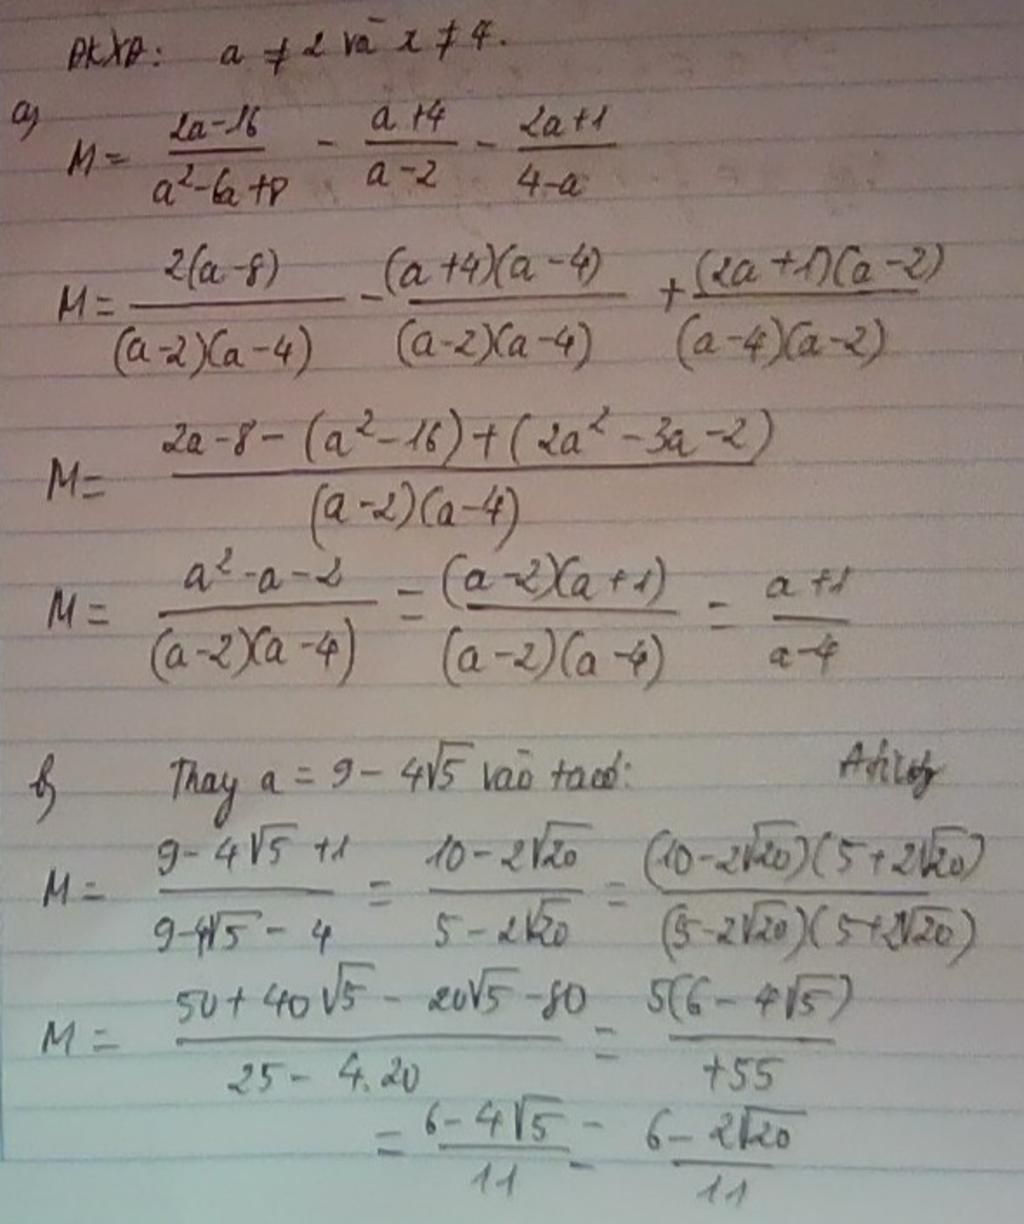 ĐKXĐ: a ≠ 2 và x ≠ 4.
a) M = (2a-16)/(a²-6a+8) - (a+4)/(a-2) - (2a+1)/(4-a)
M = 2(a-8)/((a-2)(a-4)) - (a+4)(a-4)/((a-2)(a-4)) + (2a+1)(a-2)/((a-4)(a-2))
M = (2a-8-(a²-16)+(2a²-3a-2))/((a-2)(a-4))
M = (a²-a-2)/((a-2)(a-4)) = (a-2)(a+1)/((a-2)(a-4)) = (a+1)/(a-4)
b) Thay a = 9 - 4√5 vào ta có:
M = (9-4√5+1)/(9-4√5-4) = (10-2√20)/(5-2√20) = (10-2√20)(5+2√20)/((5-2√20)(5+2√20))
M = (50+40√5-20√5-80)/(25-4.20) = 5(6-4√5)/(+55)
= (6-4√5)/11 = (6-2√20)/11